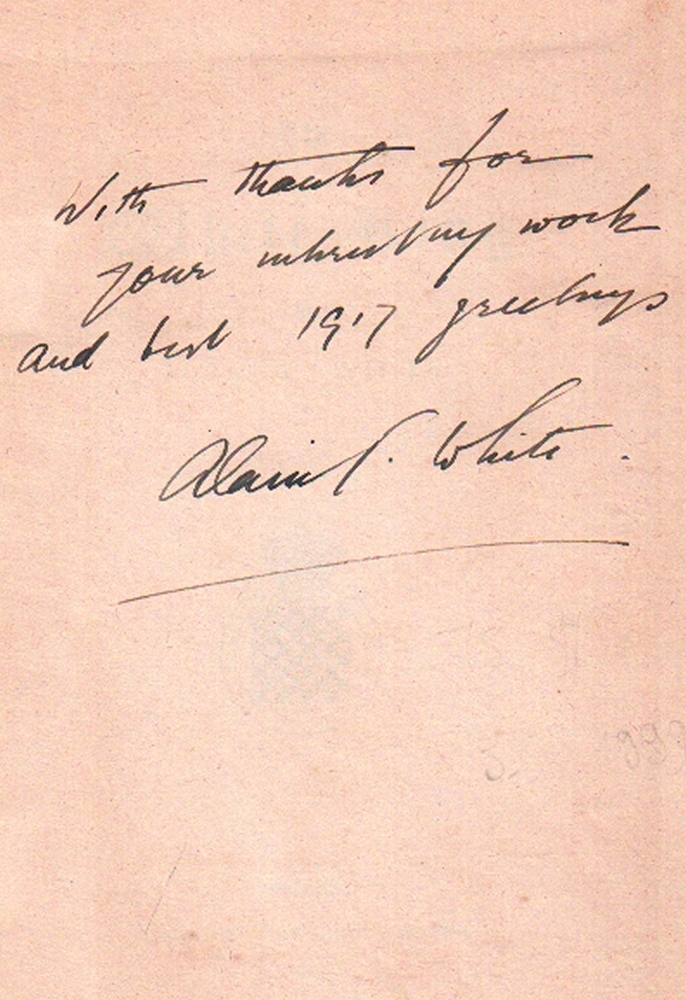 With thanks for
your interesting work
and best 1917 greetings
Alain C. White.